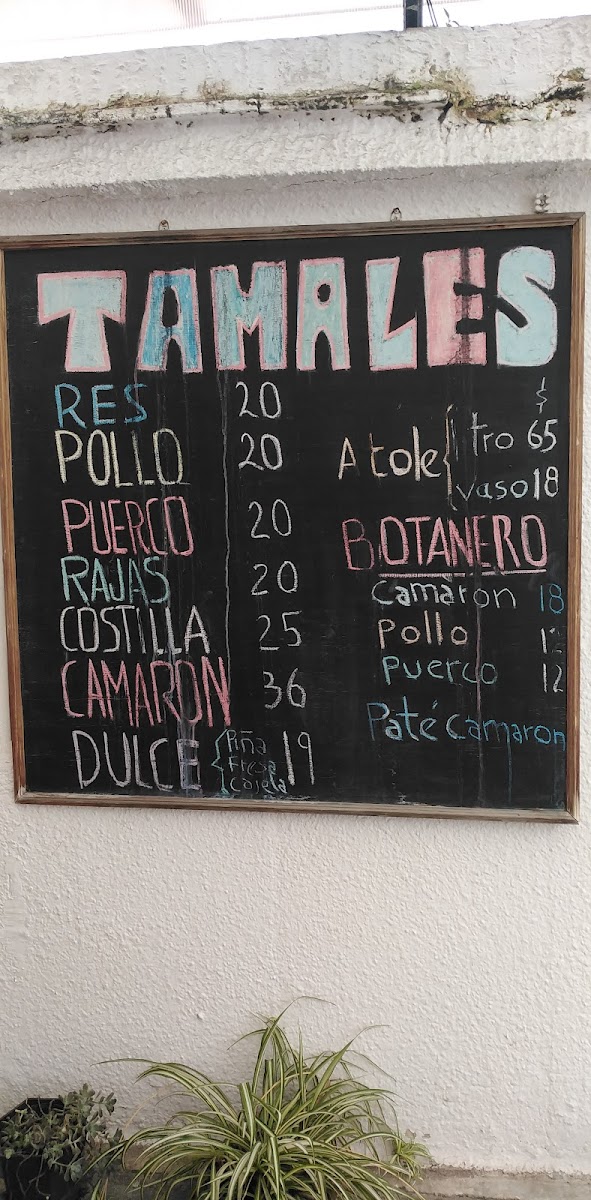 TAMALES
RES 20
POLLO 20
PUERCO 20
RAJAS 20
COSTILLA 25
CAMARON 36
DULCE { Piña 19
Fresa
Cajeta
$
Atole { ltro 65
vaso 18
BOTANERO
Camarón 18
Pollo 12
Puerco 12
Paté camaron